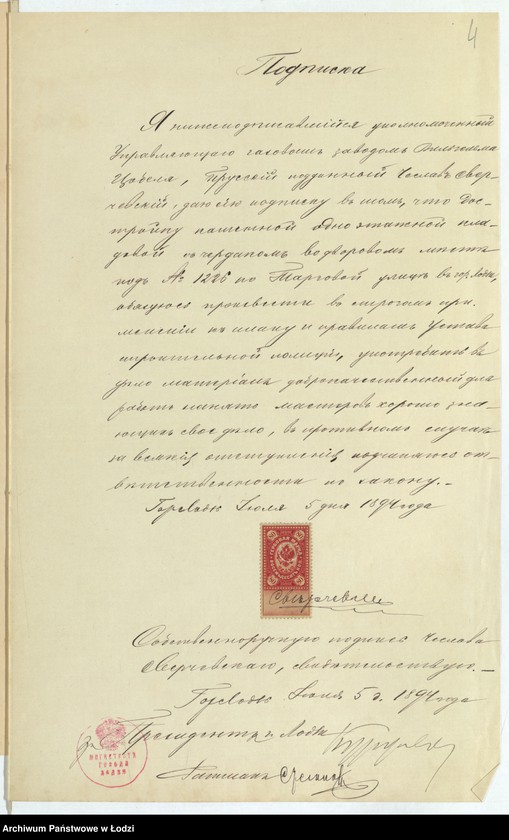 4
Подписка
Я нижеподписавшійся уполномоченный
Управляющаго газовымъ заводомъ Вильгельма
Цобеля, Прусскій подданный Чеславъ Свер-
чевскій, даю сію подписку въ томъ, что Дос-
тройку каменной одноэтажной кла-
довой съ чердакомъ во дворовомъ мѣстѣ
подъ № 1226 по Торговой улицѣ въ гор. Лодзи,
обязуюсь произвести въ строгомъ при-
мѣненіи къ плану и правиламъ Устава
строительной полиціи, употреблять въ
дѣло матеріалъ доброкачественный для
работъ нанять мастеровъ хорошо зна-
ющихъ свое дѣло, въ противномъ случаѣ
за всякія отступленія подчиняюсь от-
вѣтственности по закону.-
Гор. Лодзь Іюля 5 дня 1894 года
Собственноручную подпись Чеслава
Сверчевскаго, свидѣтельствую.-
Гор. Лодзь Іюля 5 д. 1894 года
За Президента г. Лодзи
МАГИСТРАТЪ
ГОРОДА
ЛОДЗИ
Archiwum Państwowe w Łodzi